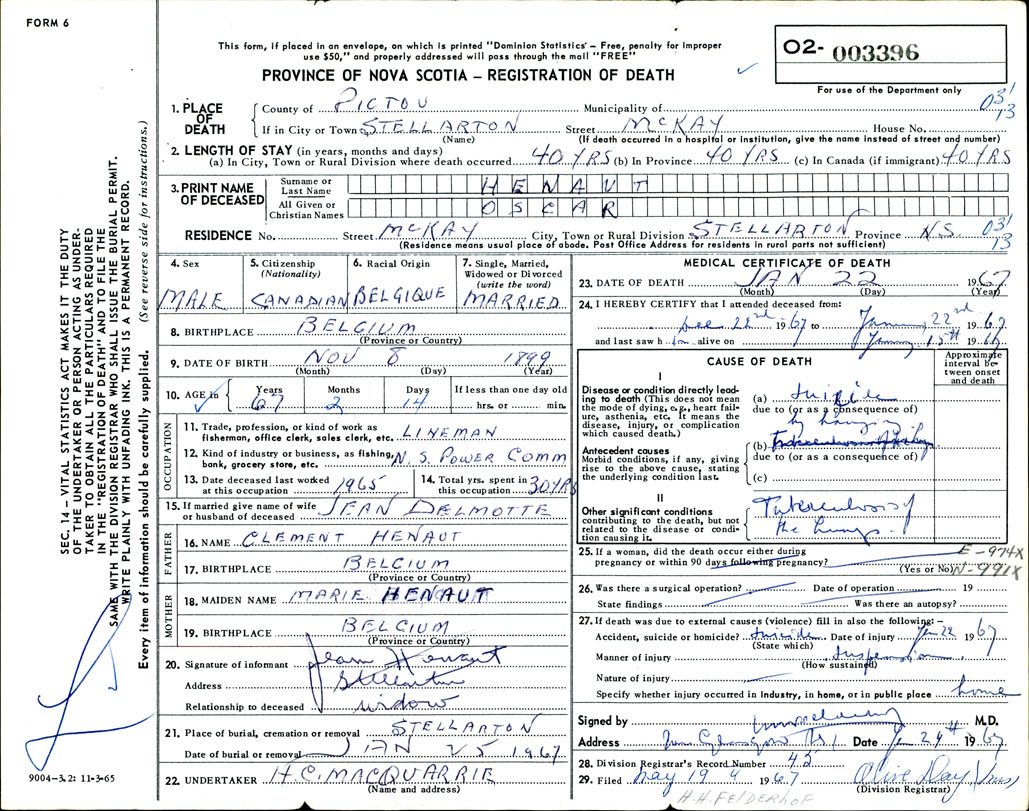 FORM 6
This form, if placed in an envelope, on which is printed "Dominion Statistics – Free, penalty for improper
use $50," and properly addressed will pass through the mail "FREE"
O2- 003396
PROVINCE OF NOVA SCOTIA – REGISTRATION OF DEATH
For use of the Department only
SEC. 14 – VITAL STATISTICS ACT MAKES IT THE DUTY
OF THE UNDERTAKER OR PERSON ACTING AS UNDER-
TAKER TO OBTAIN ALL THE PARTICULARS REQUIRED
IN THE "REGISTRATION OF DEATH" AND TO FILE THE
SAME WITH THE DIVISION REGISTRAR WHO SHALL ISSUE THE BURIAL PERMIT.
WRITE PLAINLY WITH UNFADING INK. THIS IS A PERMANENT RECORD.
Every item of information should be carefully supplied. (See reverse side for instructions.)
1. PLACE OF DEATH County of PICTOU Municipality of 03/13
If in City or Town STELLARTON Street MCKAY House No.
(Name) (If death occurred in a hospital or institution, give the name instead of street and number)
2. LENGTH OF STAY (in years, months and days)
(a) In City, Town or Rural Division where death occurred 40 YRS (b) In Province 40 YRS (c) In Canada (if immigrant) 40 YRS
3. PRINT NAME OF DECEASED Surname or Last Name HENAUT
All Given or Christian Names OSCAR
RESIDENCE No. Street MCKAY City, Town or Rural Division STELLARTON Province N.S. 03/13
(Residence means usual place of abode. Post Office Address for residents in rural parts not sufficient)
4. Sex MALE
5. Citizenship (Nationality) CANADIAN
6. Racial Origin BELGIQUE
7. Single, Married, Widowed or Divorced (write the word) MARRIED
8. BIRTHPLACE BELGIUM
(Province or Country)
9. DATE OF BIRTH NOV 8 1899
(Month) (Day) (Year)
10. AGE in Years 67 Months 2 Days 14 If less than one day old hrs. or min.
OCCUPATION
11. Trade, profession, or kind of work as
fisherman, office clerk, sales clerk, etc. LINEMAN
12. Kind of industry or business, as fishing,
bank, grocery store, etc. N.S. POWER COMM
13. Date deceased last worked
at this occupation 1965
14. Total yrs. spent in
this occupation 30 YRS
15. If married give name of wife
or husband of deceased JEAN DELMOTTE
FATHER
16. NAME CLEMENT HENAUT
17. BIRTHPLACE BELGIUM
(Province or Country)
MOTHER
18. MAIDEN NAME MARIE HENAUT
19. BIRTHPLACE BELGIUM
(Province or Country)
20. Signature of informant Jean Henaut
Address Stellarton
Relationship to deceased widow
21. Place of burial, cremation or removal STELLARTON
Date of burial or removal JAN 25 1967
22. UNDERTAKER H.C. MACQUARRIE
(Name and address)
9004-3.2: 11-3-65
MEDICAL CERTIFICATE OF DEATH
23. DATE OF DEATH JAN 22 1967
(Month) (Day) (Year)
24. I HEREBY CERTIFY that I attended deceased from:
Dec 22nd 1967 to January 22nd 1967
and last saw him alive on January 15th 1967
CAUSE OF DEATH
Approximate interval between onset and death
I
Disease or condition directly lead-
ing to death (This does not mean
the mode of dying, e.g., heart fail-
ure, asthenia, etc. It means the
disease, injury, or complication
which caused death.)
(a) suicide
due to (or as a consequence of)
by hanging
Antecedent causes
Morbid conditions, if any, giving
rise to the above cause, stating
the underlying condition last.
(b)
due to (or as a consequence of)
(c)
II
Other significant conditions
contributing to the death, but not
related to the disease or condi-
tion causing it.
Tuberculosis of
the lungs
25. If a woman, did the death occur either during
pregnancy or within 90 days following pregnancy?
(Yes or No)
E-974X
N-991X
26. Was there a surgical operation? Date of operation 19
State findings Was there an autopsy?
27. If death was due to external causes (violence) fill in also the following: –
Accident, suicide or homicide? suicide Date of injury Jan 22 1967
(State which)
Manner of injury suspension
(How sustained)
Nature of injury
Specify whether injury occurred in industry, in home, or in public place home
Signed by M.D.
Address New Glasgow N.S. Date Jan 24th 1967
28. Division Registrar's Record Number 42
29. Filed May 19 1967 Olive Day (Mrs)
(Division Registrar)
H.H. FELDERHOF